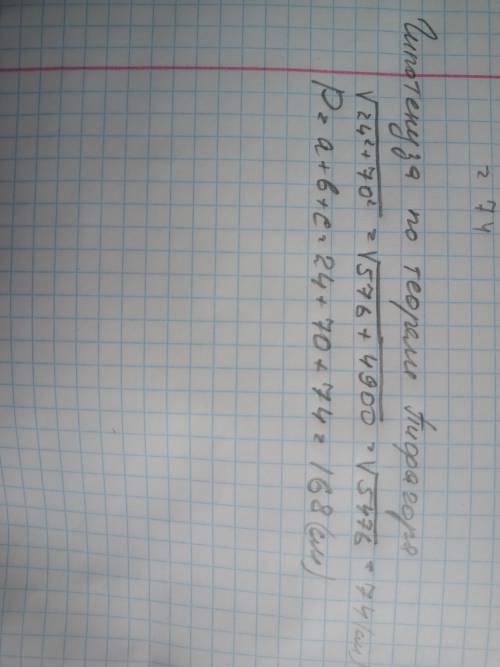 = 74
Гипотенуза по теореме Пифагора
√24²+70² = √576 + 4900 = √5476 = 74 (см)
P = a + b + c = 24 + 70 + 74 = 168 (см)